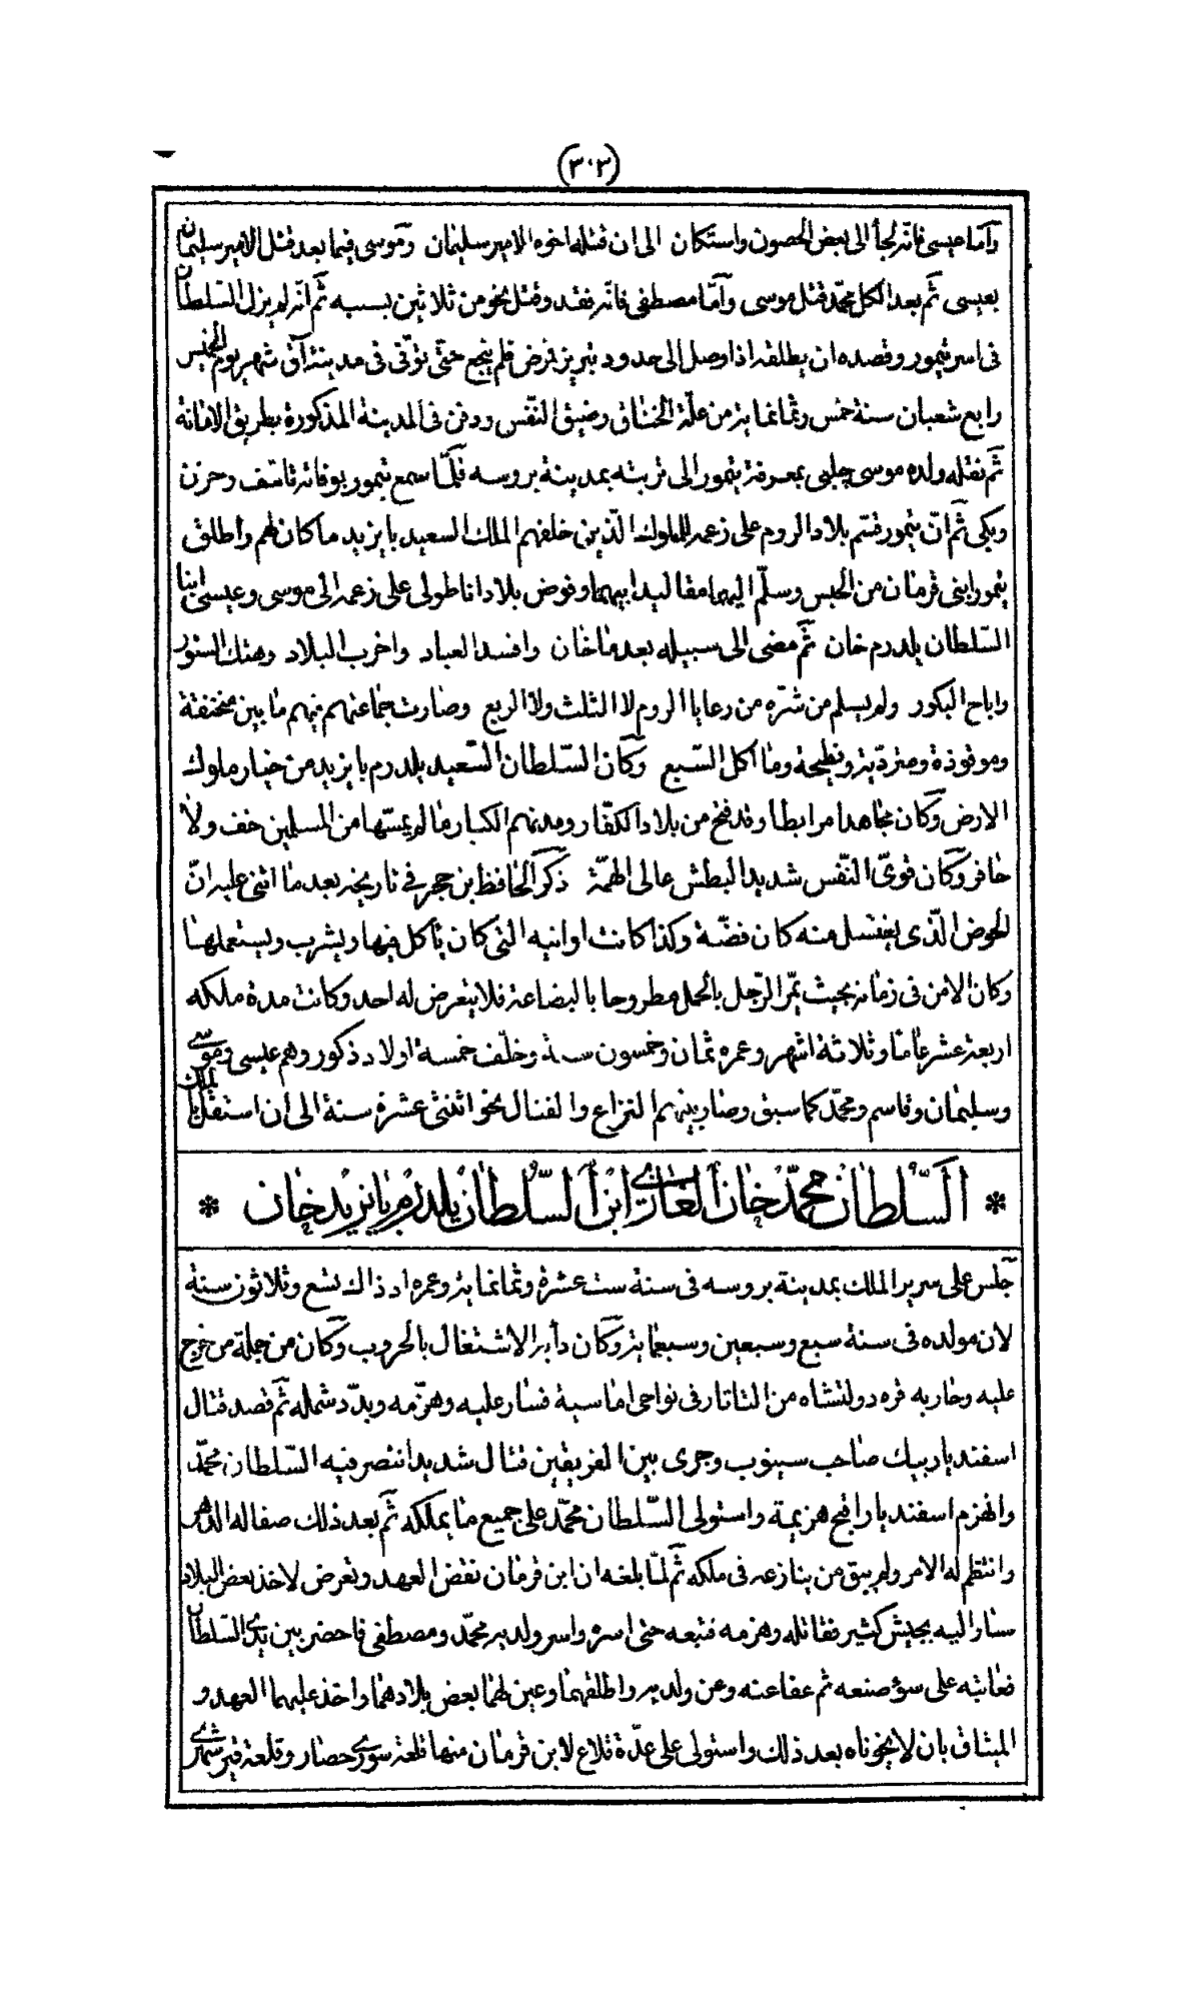 (٣٠٣)
وأما عيسى فانه لجأ الى بعض الحصون واستكان الى ان قتله اخوه الامير سليمان وموسى فيما بعد قتل الامير سليمان
بعيسى ثم بعد الكل محمد قتل موسى وأما مصطفى فانه فقد وقتل نحو من ثلاثين بسببه ثم انه لم يزل السلطان
فى اسر تيمور وقصده ان يطلقه اذا وصل الى حدود تبريز فمرض فلم ينجع حتى توفى فى مدينة آق شهر يوم الخميس
رابع شعبان سنة خمس وثمانماية من علة الخناق وضيق النفس ودفن فى المدينة المذكورة بطريق الامانة
ثم نقله ولده موسى چلبى بمعرفة تيمور الى تربته بمدينة بروسه فلما سمع تيمور بوفاته تاسف وحزن
وبكى ثم ان تيمور قسم بلاد الروم على زعمه للملوك الذين خلفهم الملك السعيد بايزيد ما كان لهم واطلق
تيمور ابنى قرمان من الحبس وسلم اليهما مقاليد ابيهما وفوض بلاد اناطولى على زعمه الى موسى وعيسى ابنا
السلطان يلدرم خان ثم مضى الى سبيله بعد ما خان وافسد العباد واخرب البلاد وهتك الستور
واباح البكور ولم يسلم من شره من رعايا الروم لا الثلث ولا الربع وصارت جماعتهم فيهم ما بين منخنقة
وموقوذة ومتردية ونطيحة وما اكل السبع وكان السلطان السعيد يلدرم بايزيد من خيار ملوك
الارض وكان مجاهدا مرابطا وقد فتح من بلاد الكفار ومدنهم الكبار ما لم يمسها من المسلمين خف ولا
حافر وكان قوى النفس شديد البطش عالى الهمة ذكر الحافظ بن حجر فى تاريخه بعد ما اثنى عليه ان
الحوض الذى يغتسل منه كان فضة وكذا كانت اوانيه التى كان يأكل فيها ويشرب ويستعملها
وكان الامن فى زمانه بحيث يمر الرجل بالحمل مطروحا بالبضاعة فلا يتعرض له احد وكانت مدة ملكه
اربعة عشر عاما وثلاثة اشهر وعمره ثمان وخمسون سنة وخلف خمسة اولاد ذكور وهم عيسى وموسى
وسليمان وقاسم ومحمد كما سبق وصار بينهم النزاع والقتال نحو اثنتى عشرة سنة الى ان استقل بالملك
* السلطان محمد خان الغازى ابن السلطان يلدرم بايزيد خان *
جلس على سرير الملك بمدينة بروسه فى سنة ست عشرة وثمانماية وعمره اذ ذاك تسع وثلاثون سنة
لان مولده فى سنة سبع وسبعين وسبعماية وكان دأبه الاشتغال بالحروب وكان من جملة من خرج
عليه وحاربه قره دولتشاه من التاتار فى نواحى اماسية فسار عليه وهزمه وبدد شمله ثم قصد قتال
اسفنديار بيك صاحب سينوب وجرى بين الفريقين قتال شديد انتصر فيه السلطان محمد
وانهزم اسفنديار اقبح هزيمة واستولى السلطان محمد على جميع ما يملكه ثم بعد ذلك صفا له الدهر
وانتظم له الامر ولم يبق من ينازعه فى ملكه ثم لما بلغه ان ابن قرمان نقض العهد وتعرض لاخذ بعض البلاد
سار اليه بجيش كثير فقاتله وهزمه فتبعه حتى اسره واسر ولديه محمد ومصطفى فاحضر بين يدى السلطان
فعاتبه على سوء صنعه ثم عفا عنه وعن ولديه واطلقهما وعين لهما بعض بلادهما واخذ عليهما العهد و
الميثاق بان لا يخوناه بعد ذلك واستولى على عدة قلاع لابن قرمان منها قلعة سورى حصار وقلعة قير شهرى